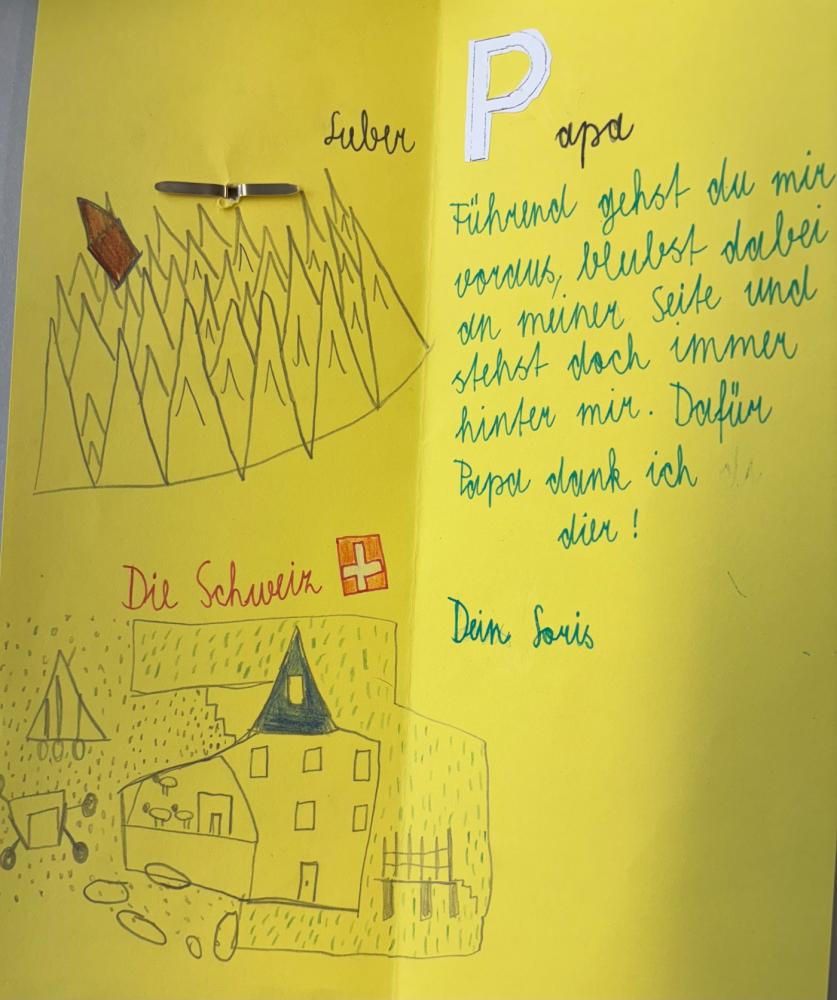 Lieber Papa
Führend gehst du mir
voraus, bleibst dabei
an meiner Seite und
stehst doch immer
hinter mir. Dafür
Papa dank ich
dier!
Die Schweiz
Dein Loris